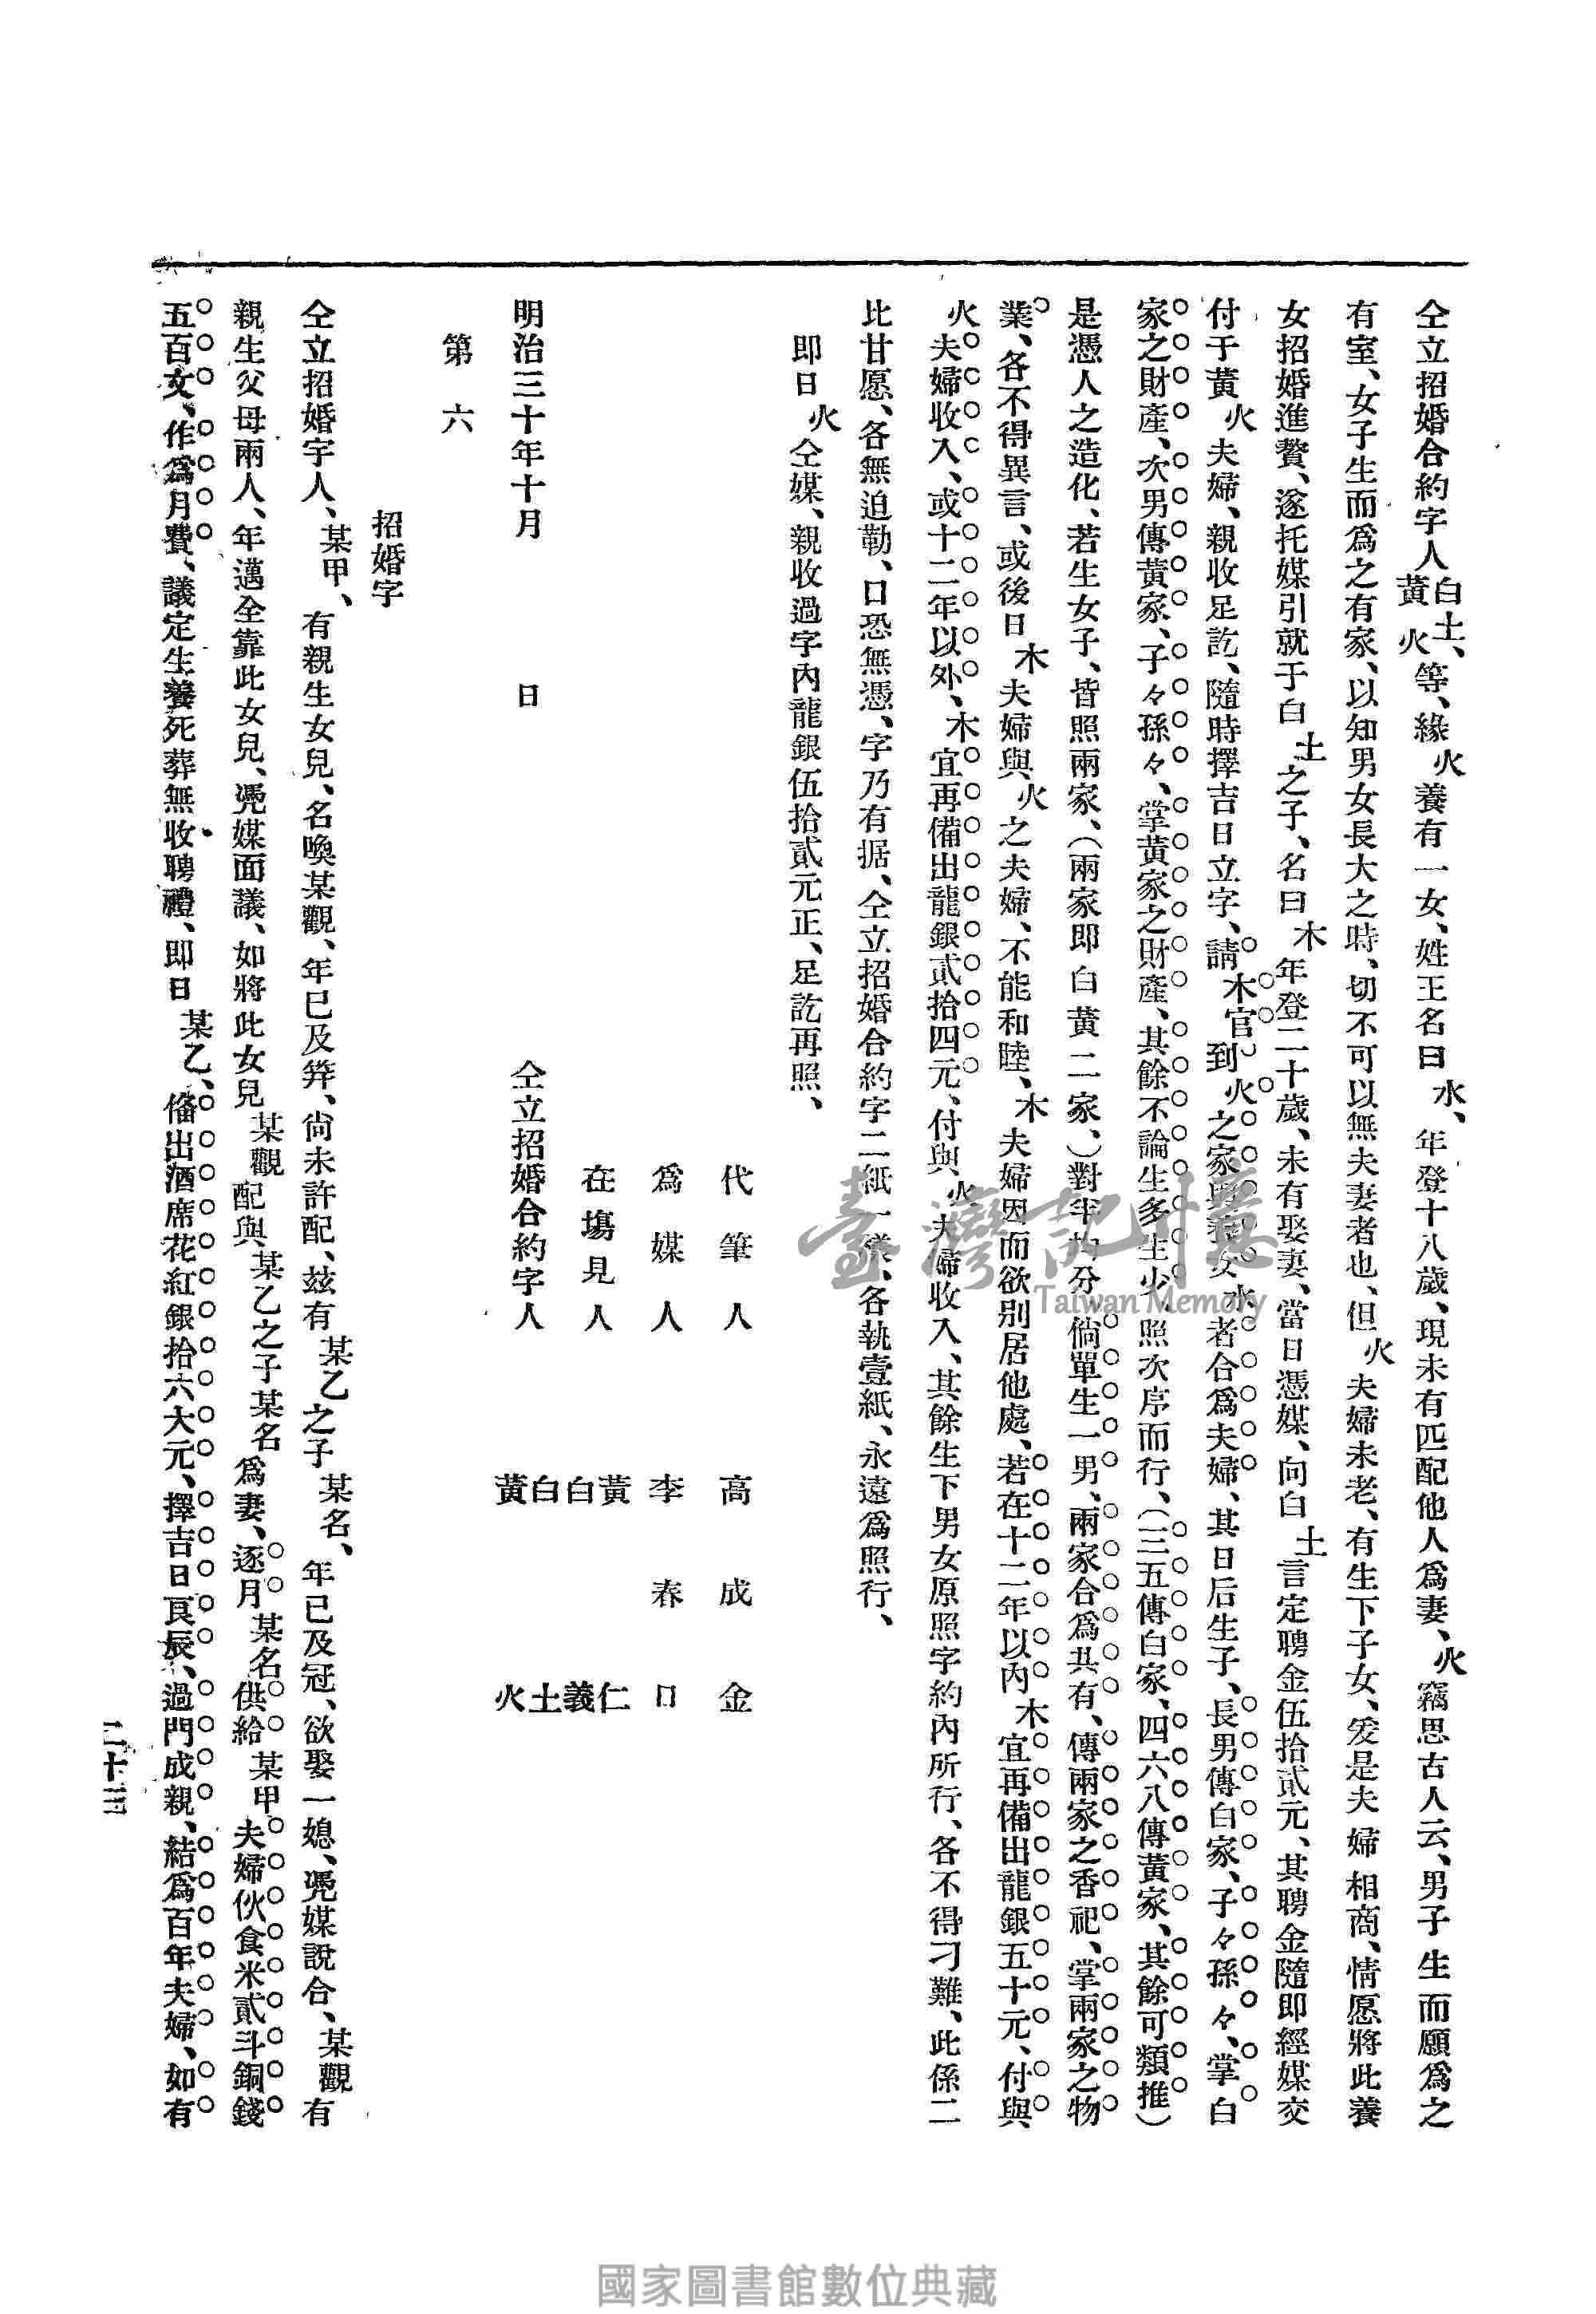 仝立招婚合約字人白土、黃火等、緣火養有一女、姓王名曰水、年登十八歲、現未有匹配他人爲妻、火竊思古人云、男子生而願爲之
有室、女子生而爲之有家、以知男女長大之時、切不可以無夫妻者也、但火夫婦未老、有生下子女、爰是夫婦相商、情愿將此養
女招婚進贅、遂托媒引就于白土之子、名曰木年登二十歲、未有娶妻、當日憑媒、向白土言定聘金伍拾貳元、其聘金隨即經媒交
付于黃火夫婦、親收足訖、隨時擇吉日立字、請木官到火之家與養女水者合爲夫婦、其日后生子、長男傳白家、子々孫々、掌白
家之財產、次男傳黃家、子々孫々、掌黃家之財產、其餘不論生多生少、照次序而行、(三五傳白家、四六八傳黃家、其餘可類推)
是憑人之造化、若生女子、皆照兩家、(兩家即白黃二家、)對半均分、倘單生一男、兩家合爲共有、傳兩家之香祀、掌兩家之物
業、各不得異言、或後日木夫婦與、火之夫婦、不能和睦、木夫婦因而欲別居他處、若在十二年以內木宜再備出龍銀五十元、付與、
火夫婦收入、或十二年以外、木宜再備出龍銀貳拾四元、付與、火夫婦收入、其餘生下男女原照字約內所行、各不得刁難、此係二
比甘愿、各無迫勒、口恐無憑、字乃有据、仝立招婚合約字二紙一樣、各執壹紙、永遠爲照行、
即日火仝媒、親收過字內龍銀伍拾貳元正、足訖再照、
代筆人 高成金
爲媒人 李春口
在塲見人 黃仁 白義
明治三十年十月 日 仝立招婚合約字人 白土 黃火
第六
招婚字
仝立招婚字人、某甲、有親生女兒、名喚某觀、年已及笄、尙未許配、玆有某乙之子某名、年已及冠、欲娶一媳、凴媒說合、某觀有
親生父母兩人、年邁全靠此女兒、凴媒面議、如將此女兒某觀配與、某乙之子某名爲妻、逐月某名供給某甲夫婦伙食米貳斗銅錢
五百文、作爲月費、議定生養死葬無收聘禮、即日某乙、備出酒席花紅銀拾六大元、擇吉日良辰、過門成親、結爲百年夫婦、如有
二十三
臺灣記憶
Taiwan Memory
國家圖書館數位典藏